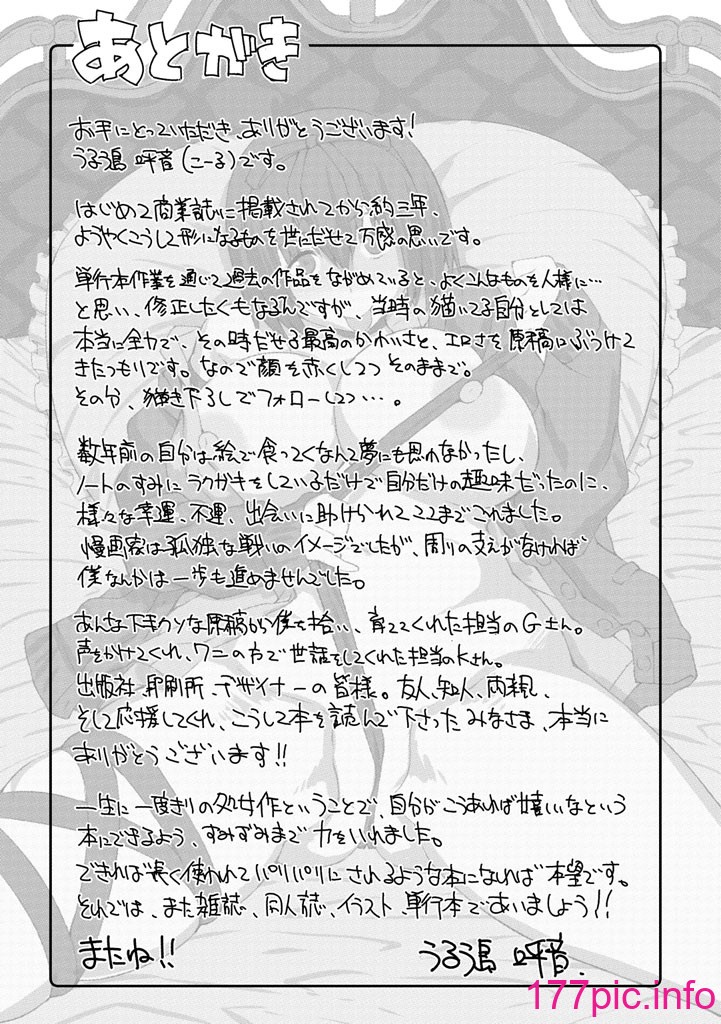 あとがき
お手にとっていただき、ありがとうございます!
うるう島 呼音(こーる)です。
はじめて商業誌に掲載されてから約三年、
ようやくこうして形になるものを世にだせて万感の思いです。
単行本作業を通じて過去の作品をながめていると、よくこんなものを人様に…
と思い、修正したくもなるんですが、当時の描いてる自分としては
本当に全力で、その時だせる最高のかわいさと、エロさを原稿にぶつけて
きたつもりです。なので顔を赤くしつつそのままで。
その分、描き下ろしでフォローしつつ…。
数年前の自分は絵で食ってくなんて夢にも思わなかったし、
ノートのすみにラクガキをしているだけで自分だけの趣味だったのに、
様々な幸運、不運、出会いに助けられてここまでこれました。
漫画家は孤独な戦いのイメージでしたが、周りの支えがなければ
僕なんかは一歩も進めませんでした。
あんな下手クソな原稿から僕を拾い、育ててくれた担当のGさん。
声をかけてくれ、ワニの方で世話をしてくれた担当のKさん。
出版社、印刷所、デザイナーの皆様。友人、知人、両親、
そして応援してくれ、こうして本を読んで下さったみなさま、本当に
ありがとうございます!!
一生に一度きりの処女作ということで、自分がこうあれば嬉しいなという
本にできるよう、すみずみまで力をいれました。
できれば長く使われてパリパリにされるような本になれば本望です。
それでは、また雑誌、同人誌、イラスト、単行本であいましょう!!
またね!!
うるう島 呼音.
177pic.info